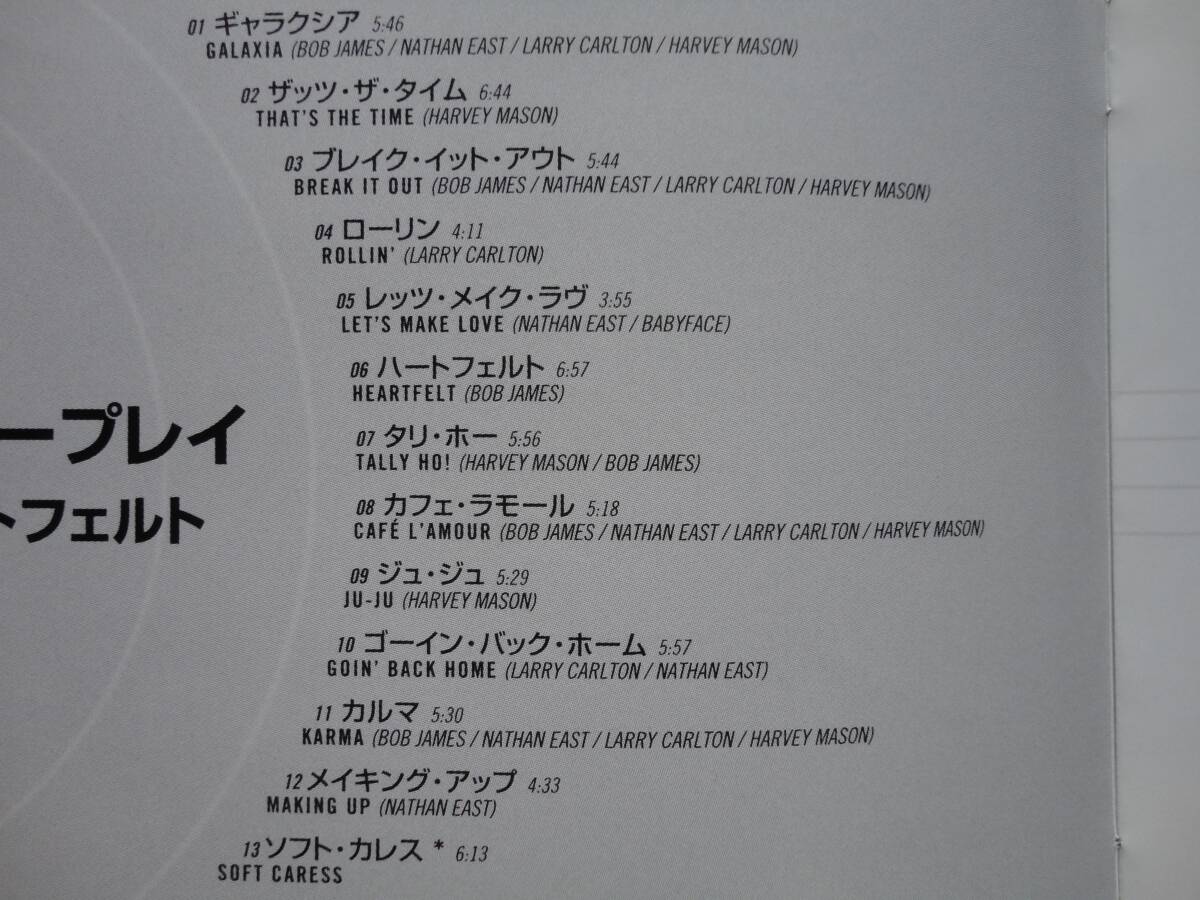 01 ギャラクシア 5:46
GALAXIA (BOB JAMES / NATHAN EAST / LARRY CARLTON / HARVEY MASON)
02 ザッツ・ザ・タイム 6:44
THAT'S THE TIME (HARVEY MASON)
03 ブレイク・イット・アウト 5:44
BREAK IT OUT (BOB JAMES / NATHAN EAST / LARRY CARLTON / HARVEY MASON)
04 ローリン 4:11
ROLLIN' (LARRY CARLTON)
05 レッツ・メイク・ラヴ 3:55
LET'S MAKE LOVE (NATHAN EAST / BABYFACE)
06 ハートフェルト 6:57
HEARTFELT (BOB JAMES)
07 タリ・ホー 5:56
TALLY HO! (HARVEY MASON / BOB JAMES)
08 カフェ・ラモール 5:18
CAFÉ L'AMOUR (BOB JAMES / NATHAN EAST / LARRY CARLTON / HARVEY MASON)
09 ジュ・ジュ 5:29
JU-JU (HARVEY MASON)
10 ゴーイン・バック・ホーム 5:57
GOIN' BACK HOME (LARRY CARLTON / NATHAN EAST)
11 カルマ 5:30
KARMA (BOB JAMES / NATHAN EAST / LARRY CARLTON / HARVEY MASON)
12 メイキング・アップ 4:33
MAKING UP (NATHAN EAST)
13 ソフト・カレス * 6:13
SOFT CARESS
ープレイ
トフェルト